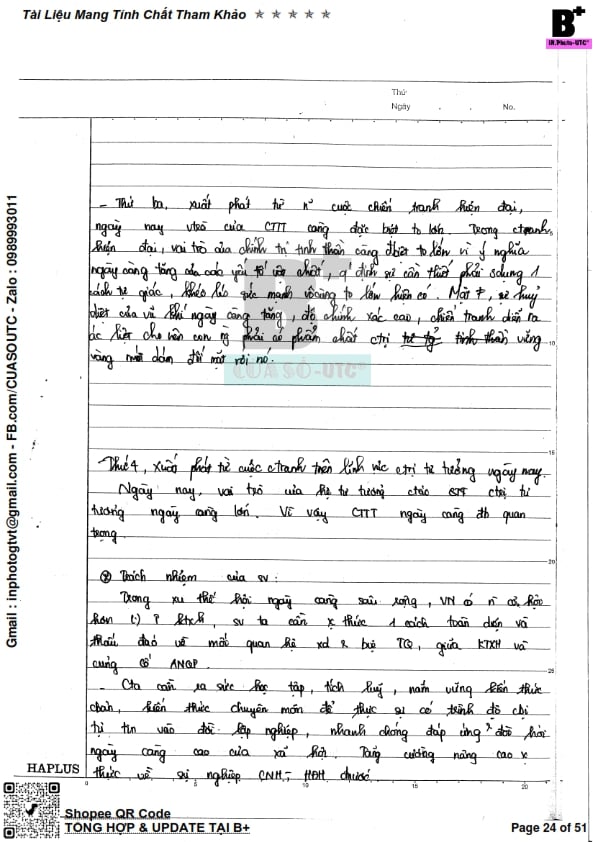 Tài Liệu Mang Tính Chất Tham Khảo ★ ★ ★ ★ ★
B+
IN.Photo-UTC®
Thứ
Ngày . . No.
- Thứ ba, xuất phát từ n² cuộc chiến tranh hiện đại,
ngày nay vtrò của CTTT càng đặc biệt to lớn. Trong ctranh
hiện đại, vai trò của chính trị tinh thần càng đbiệt to lớn vì ý nghĩa
ngày càng tăng của các yếu tố vật chất, qđịnh sự cần thiết phải sdụng 1
cách tự giác, khéo léo sức mạnh vô cùng to lớn hiện có. Mặt ≠, sự huỷ
diệt của vũ khí ngày càng tăng, độ chính xác cao, chiến tranh diễn ra
ác liệt cho nên con ng phải có phẩm chất ctrị tinh thần vững
vàng mới dám đối mặt với nó.
CUASO-UTC®
Thứ 4, xuất phát từ cuộc ctranh trên lĩnh vực ctrị tư tưởng ngày nay.
Ngày nay, vai trò của hệ tư tương ctrị tư
tương ngày càng lớn. Vì vậy CTTT ngày càng đb quan
trọng.
Trách nhiệm của sv:
Trong xu thế hội ngày càng sâu rộng, VN có n cơ hội
hơn (:) P ktxh, sv ta cần x thức 1 cách toàn diện và
thấu đáo về mối quan hệ xd & bvệ TQ, giữa KTXH và
cung cố ANQP.
- Cta cần ra sức học tập, tích luỹ, nắm vững kiến thức
kiến thức chuyên môn để thực sự có trình độ
tự tin vào đời lập nghiệp, nhanh chóng đáp ứng đòi hỏi
ngày càng cao của xã hội. Tăng cường nâng cao x
thức về sự nghiệp CNH - HĐH
5
10
15
20
25
HAPLUS 0 5 10 15 20
Gmail : inphotogtvt@gmail.com - FB.com/CUASOUTC - Zalo : 0989993011
Shopee QR Code
TỔNG HỢP & UPDATE TẠI B+
Page 24 of 51